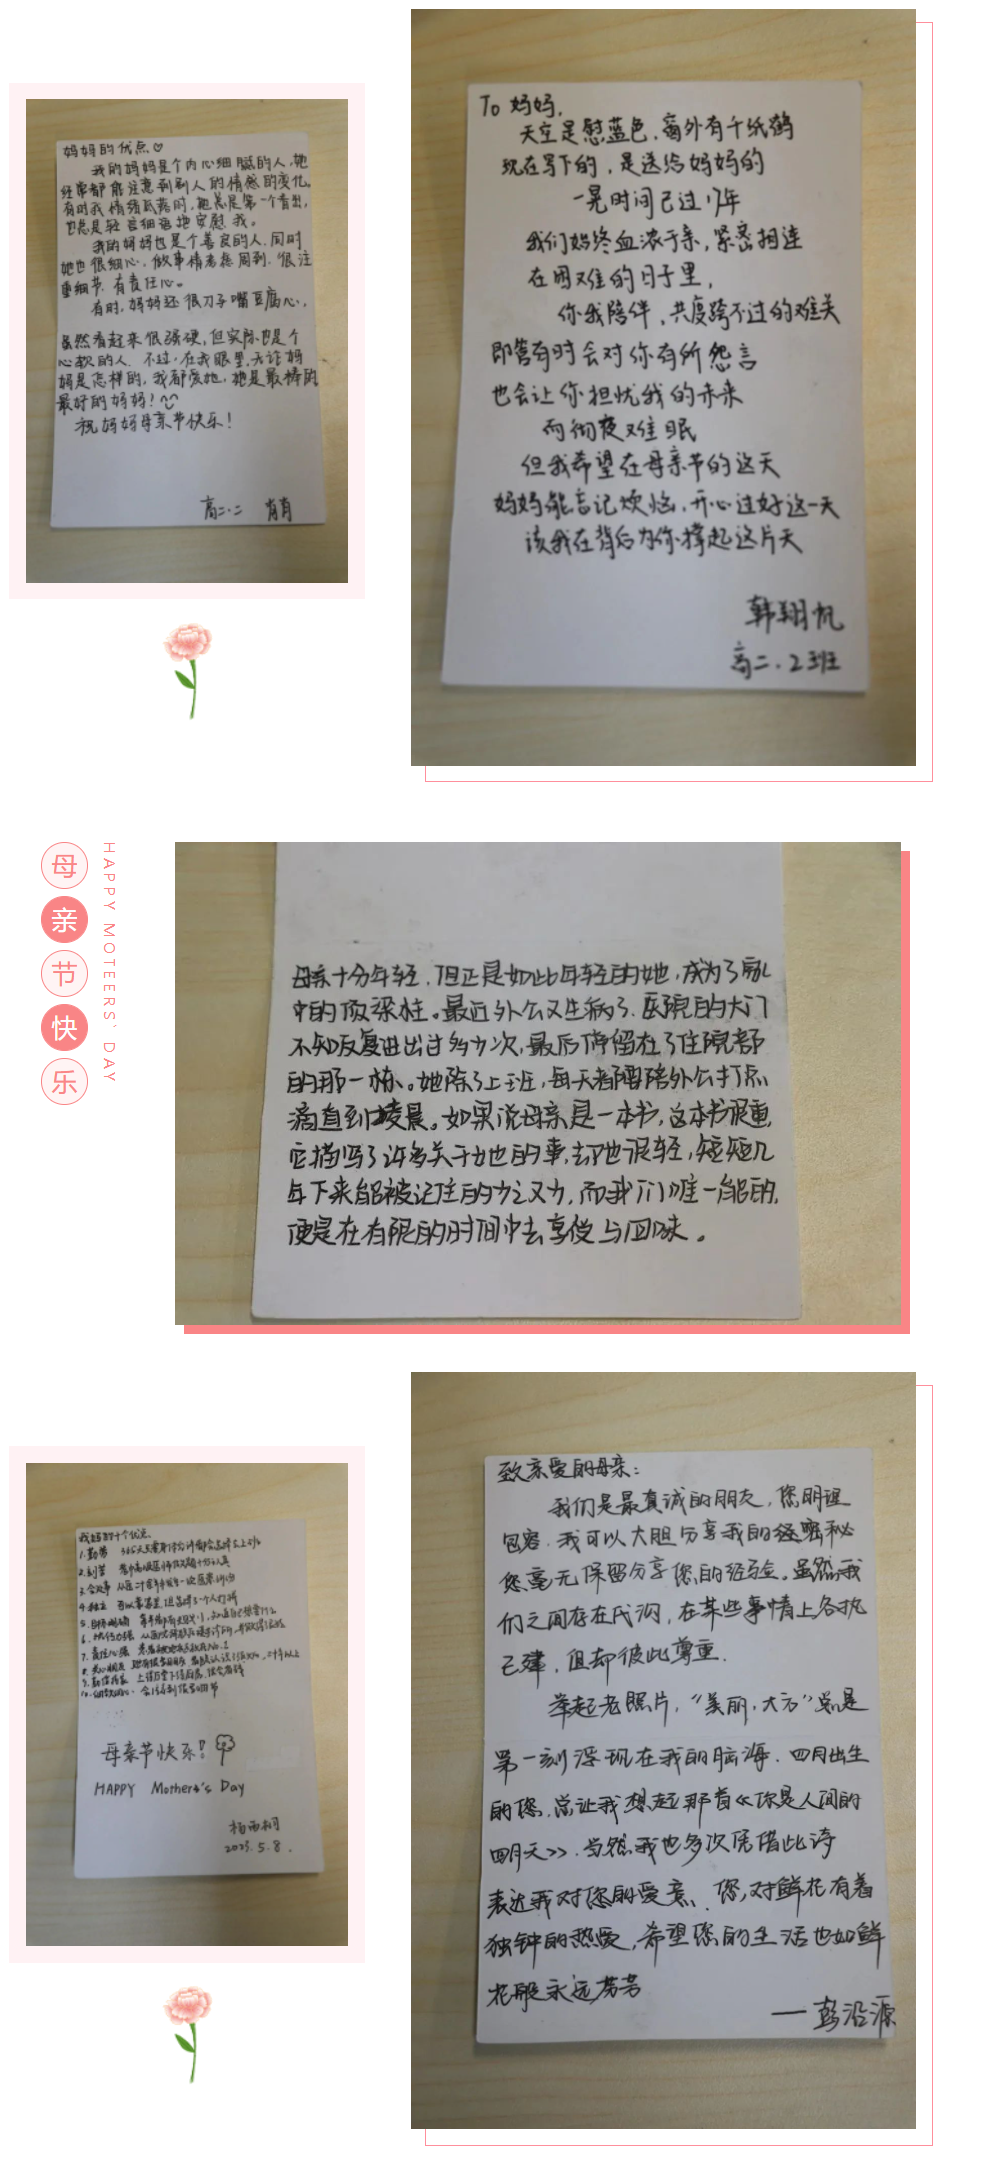 妈妈的优点♡
我的妈妈是个内心细腻的人,她
经常都能注意到别人的情感的变化。
有时我情绪低落时,她总是第一个看出,
也总是轻言细语地安慰我。
我的妈妈也是个善良的人.同时
她也很细心,做事情考虑周到.很注
重细节.有责任心。
有时,妈妈还很刀子嘴豆腐心,
虽然看起来很强硬,但实际也是个
心软的人.不过,在我眼里,无论妈
妈是怎样的,我都爱她,她是最棒的
最好的妈妈!
祝妈妈母亲节快乐!
高二.二
To 妈妈,
天空是慰蓝色,窗外有千纸鹤
现在写下的,是送给妈妈的
一晃时间已过17年
我们始终血浓于亲,紧密相连
在困难的日子里,
你我陪伴,共度跨不过的难关
即管有时会对你有所怨言
也会让你担忧我的未来
而彻夜难眠
但我希望在母亲节的这天
妈妈能忘记烦恼,开心过好这一天
该我在背后为你撑起这片天
韩翔帆
高二.2班
母亲节快乐
HAPPY MOTEERS' DAY
母亲十分年轻,但正是如此年轻的她,成为了家
中的顶梁柱。最近外公又生病了.医院的大门
不知反复进出过多少次,最后停留在了住院部
的那一栋。她除了上班,每天都要陪外公打点
滴直到凌晨。如果说母亲是一本书,这本书很重,
它描写了许多关于她的事,却也很轻,短短几
年下来能被记住的少之又少,而我们唯一能的,
便是在有限的时间中去享受与回味。
我妈的十个优点
1.勤劳
2.刻苦
4.独立
7.责任心强
母亲节快乐!
HAPPY Mother's Day
2023.5.8.
致亲爱的母亲:
我们是最真诚的朋友,您明理
包容.我可以大胆分享我的秘密
您毫无保留分享您的经验。虽然我
们之间存在代沟,在某些事情上各执
己建,但却彼此尊重.
举起老照片,"美丽.大方"总是
第一刻浮现在我的脑海.四月出生
的您,总让我想起那首《你是人间的
四月天》.当然我也多次凭借此诗
表达我对您的爱意、您,对鲜花有着
独钟的热爱,希望您的生活也如鲜
花般永远芳芳
—彭沿源